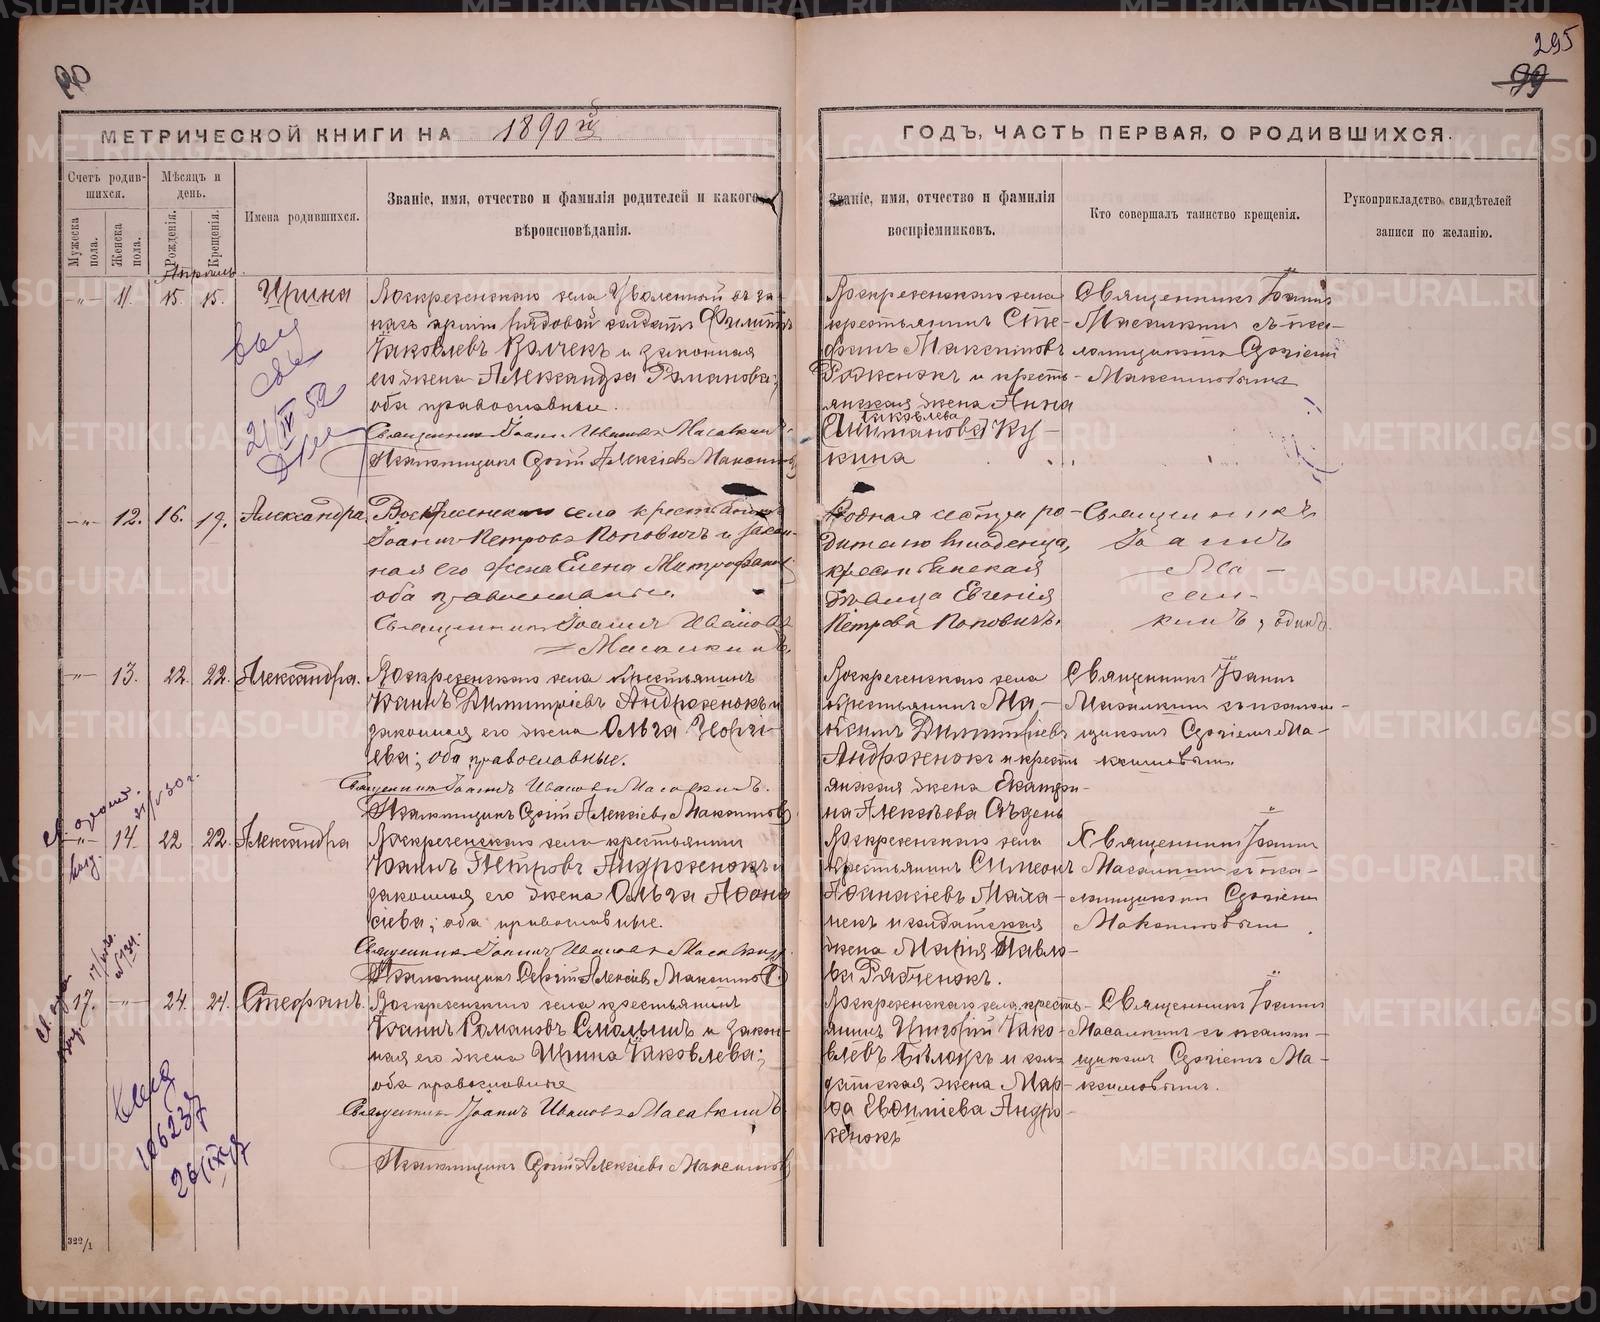 90
295
99
МЕТРИЧЕСКОЙ КНИГИ НА 1890й
ГОДЪ, ЧАСТЬ ПЕРВАЯ, О РОДИВШИХСЯ.
Счетъ родив-
шихся.
Мужеска
пола.
Женска
пола.
Мѣсяцъ и
день.
Рожденія.
Крещенія.
Имена родившихся.
Званіе, имя, отчество и фамилія родителей и какого
вѣроисповѣданія.
Званіе, имя, отчество и фамилія
воспріемниковъ.
Кто совершалъ таинство крещенія.
Рукоприкладство свидѣтелей
записи по желанію.
Апрѣль
—„— 11. 15. 15. Ирина
Воскресенскаго села Уволенный въ за-
пасъ арміи рядовой солдатъ Филиппъ
Іаковлевъ Волчекъ и законная
его жена Александра Романова;
оба православные.
Священникъ Іоаннъ Ивановъ Масалкинъ
Псаломщикъ Сергій Алексіевъ Максимовъ
Воскресенскаго села
крестьянинъ Сте-
фанъ Максимовъ
и кресть-
янская жена Анна
Іаковлева
Ку-
кина
Священникъ Іоаннъ
Масалкинъ съ пса-
ломщикомъ Сергіемъ
Максимовымъ
21/IV 52
—„— 12. 16. 19. Александра
Воскресенскаго села крестьянинъ
Іоаннъ Петровъ Поповичъ и закон-
ная его жена Елена Митрофанова
оба православные.
Священникъ Іоаннъ Ивановъ
Масалкинъ
Родная сестра ро-
дителю младенца,
крестьянская
дѣвица Евгенія
Петрова Поповичъ.
Священникъ
Іоаннъ
Ма-
сал-
кинъ, одинъ.
—„— 13. 22. 22. Александра.
Воскресенскаго села крестьянинъ
Іоаннъ Димитріевъ Андросенокъ и
законная его жена Ольга Георгі-
ева; оба православные.
Священникъ Іоаннъ Ивановъ Масалкинъ.
Псаломщикъ Сергій Алексіевъ Максимовъ
Воскресенскаго села
крестьянинъ Ма-
ксимъ Димитріевъ
Андросенокъ и кресть-
янская жена Екатери-
на Алексѣева Сѣдень
Священникъ Іоаннъ
Масалкинъ съ псалом-
щикомъ Сергіемъ Ма-
ксимовымъ
—„— 14. 22 22. Александра
Воскресенскаго села крестьянинъ
Іоаннъ Петровъ Андросенокъ и
законная его жена Ольга Афана-
сіева; оба православные.
Священникъ Іоаннъ Ивановъ Масалкинъ
Псаломщикъ Сергій Алексіевъ Максимовъ
Воскресенскаго села
крестьянинъ Симеонъ
Афанасіевъ Мала-
и солдатская
жена Марія Павло-
ва Рябченокъ.
Священникъ Іоаннъ
Масалкинъ съ пса-
ломщикомъ Сергіемъ
Максимовымъ
17. —„— 24. 24. Стефанъ.
Воскресенскаго села крестьянинъ
Іоаннъ Романовъ Смольинъ и закон-
ная его жена Ирина Іаковлева;
оба православные
Священникъ Іоаннъ Ивановъ Масалкинъ
Псаломщикъ Сергій Алексіевъ Максимовъ
Воскресенскаго села, кресть-
янинъ Григорій Іако-
влевъ и сол-
датская жена Мар-
ѳа Евфиміева Андро-
сенокъ
Священникъ Іоаннъ
Масалкинъ съ псалом-
щикомъ Сергіемъ Ма-
ксимовымъ.
322/1
METRIKI.GASO-URAL.RU